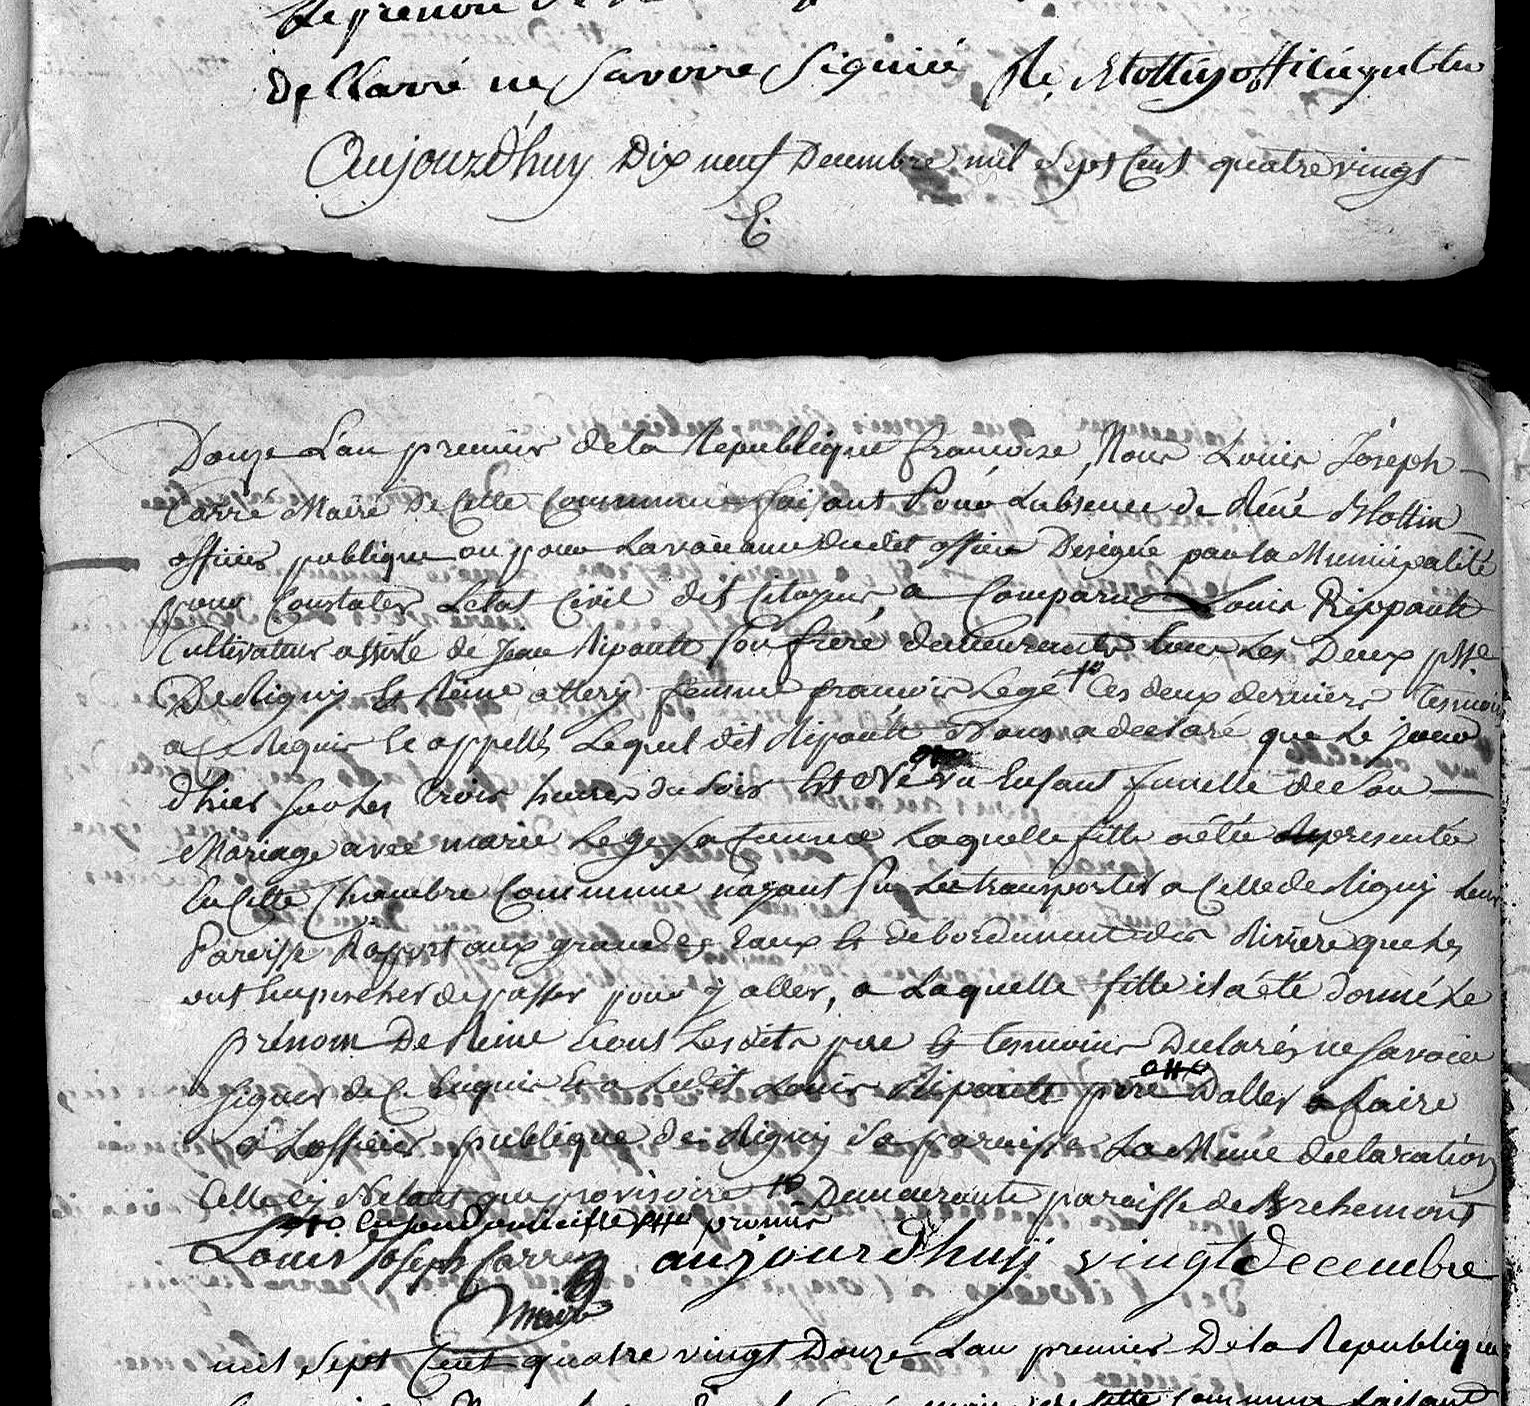 le prenom de
De Clarré ne Savoire Signiée R. Blottin officié public
Aujourd'huy Dix neuf Decembre mil Sept Cent quatre vingt
Douze L'an premier de la Republique françoise Nous Louis Joseph
Carré Maire De Cette Commune faisant Pour Labsence de Réné Blottin
officier publique ou pour la vacance dudit office Designé par la Municipalité
pour Constater Letat Civil des Citoyens, a Comparu Louis Rippault
Cultivateur assisté dé Jean Ripault Son frere demeurants tous Les Deux psse
De Rigny Et Reine attery femme francois Legé Ces deux derniers Tesmoins
a Ce Requis Et appellés Lequel dit Ripault Nous a declaré que Le jour
d'hier Sur Les Trois heures du Soir Est Né un Enfant femelle de Son
Mariage avec marie Legé Sa femme Laquelle fille a été Representée
En Cette Chambre Commune n'ayant Pu La transporter a Celle de Rigny Leur
Paroisse Raport aux grandes Eaux Et debordement des Rivière que Les
ont Empescher de passer pour y aller, a Laquelle fille il a été donné Le
prénom De Reine Tous Lesdits pere Et Tesmoins Declarés ne Savoir
Signer de Ce Enquis Et a Ledit Louis Ripault pere Daller faire
a Lofficier publique de Rigny Sa paroisse La Meme declaration
Celle cy Netant que provisoire Demeurante paroisse de Brehemont
promis
Louis Joseph Carré aujourd'huy vingt Decembre
maire
mil Sept Cent quatre vingt Douze Lan premier De la Republique
maire de cette Commune faisant